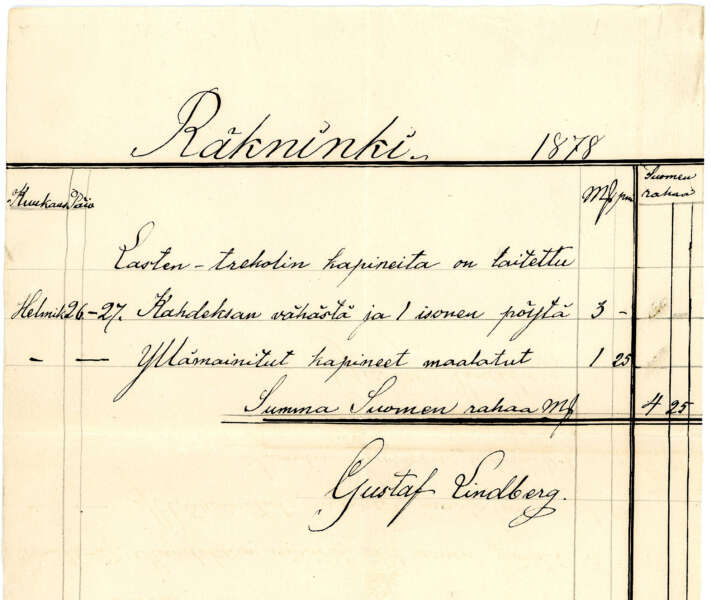 Räkninki 1878
Kuukaus Päiv Mk pni Suomen rahaa
Lasten-trekolin kapineita on laitettu
Helmik 26-27. Kahdeksan vähästä ja 1 isonen pöytä 3 -
- — Yllämainitut kapineet maalatut 1 25
Summa Suomen rahaa Mk 4 25
Gustaf Lindberg.